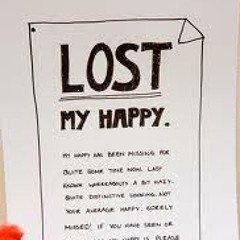 LOST
MY HAPPY.
MY HAPPY HAS BEEN MISSING FOR
QUITE SOME TIME NOW. LAST
KNOWN WHEREABOUTS A BIT HAZY.
QUITE DISTINCTIVE LOOKING, NOT
YOUR AVERAGE HAPPY. SORELY
MISSED! IF YOU HAVE SEEN OR
MY HAPPY IS PLEASE